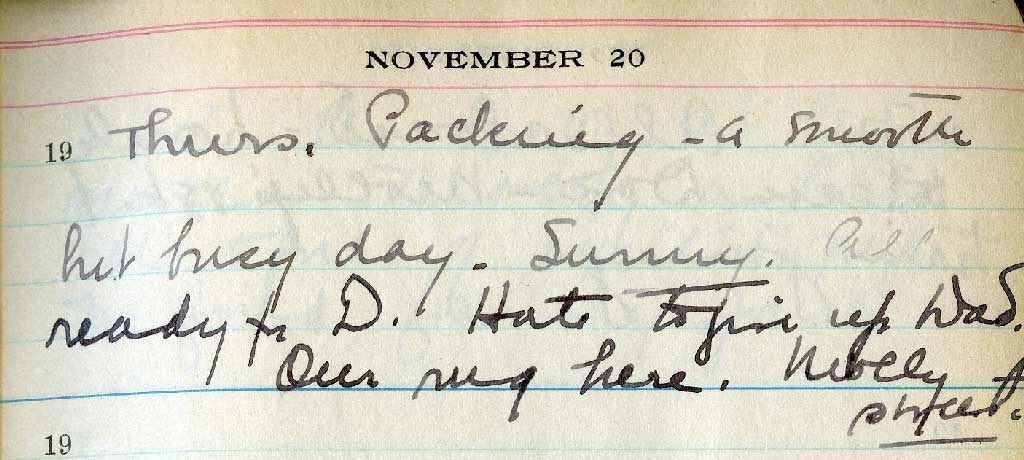 NOVEMBER 20
19 Thurs. Packing - a smooth
but busy day - Sunny. All
ready for D. Hate to give up Dad.
Our rug here.
19